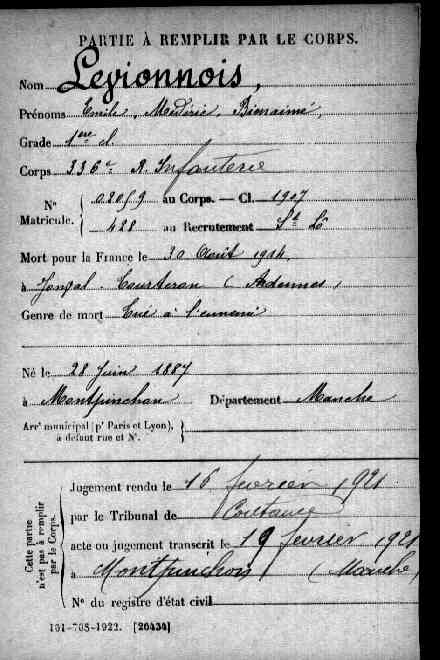 PARTIE À REMPLIR PAR LE CORPS.
Nom Legionnois,
Prénoms Emile, Médéric, Bienaimé,
Grade 1ère cl.
Corps 336e R. Infanterie
N° Matricule. { 02059 au Corps. — Cl. 1907
428 au Recrutement St Lô
Mort pour la France le 30 Août 1914
à Ardennes
Genre de mort Tué à l'ennemi
Né le 28 Juin 1887
à Montpinchon Département Manche
Arrt municipal (pr Paris et Lyon), à défaut rue et N°. }
Cette partie n'est pas à remplir par le Corps.
Jugement rendu le 16 février 1921
par le Tribunal de Coutances
acte ou jugement transcrit le 19 février 1921
à Montpinchon (Manche)
N° du registre d'état civil
101-708-1922. [26434]